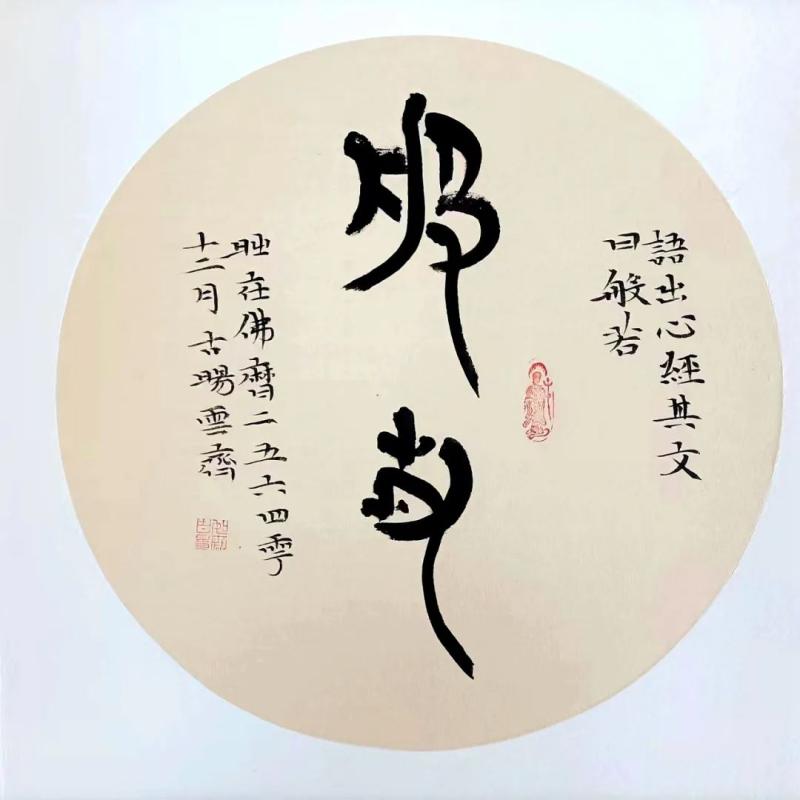 語出心經其文
曰般若
般若
在佛曆二五六四
十二月古暘雲齋